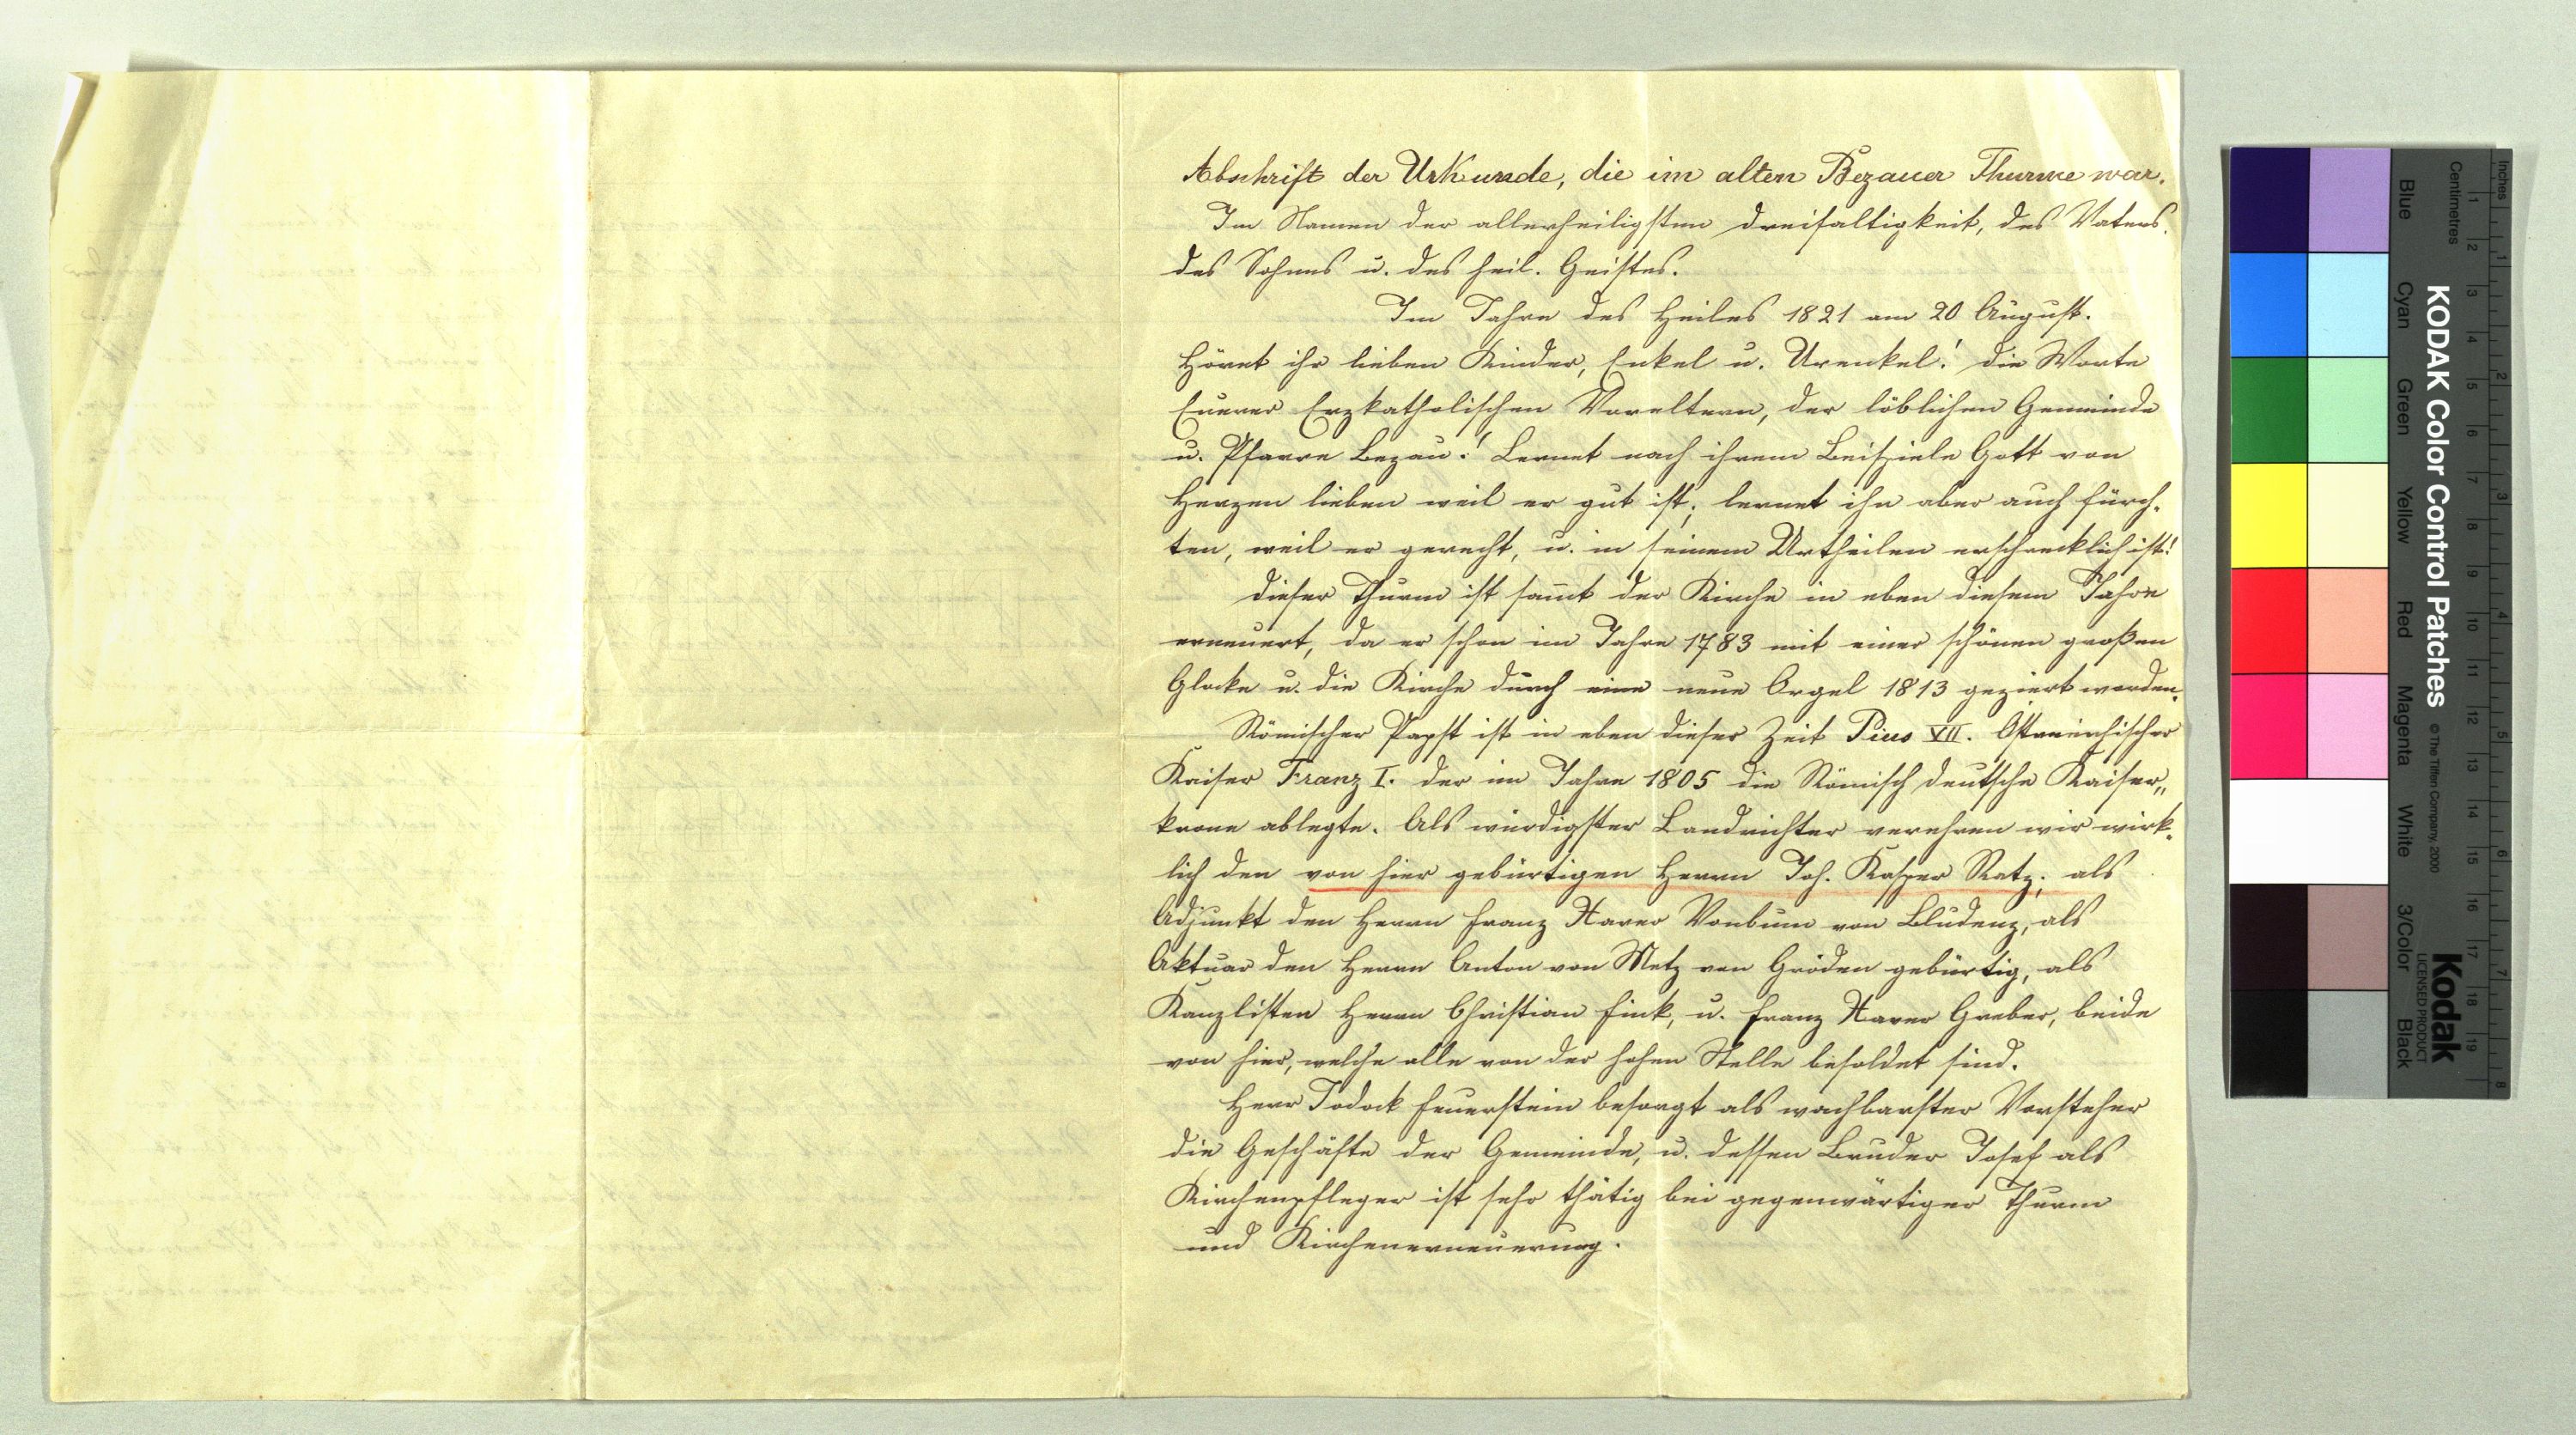 Abschrift der Urkunde, die im alten Bezauer Thurme war.
Im Namen der allerheiligsten Dreifaltigkeit, des Vaters,
des Sohnes u. des heil. Geistes.
Im Jahre des Heiles 1821 am 20 August.
Höret ihr lieben Kinder, Enkel u. Urenkel! die Worte
Euerer Erzkatholischen Voreltern, der löblichen Gemeinde
u. Pfarre Bezau! Lernet nach ihrem Beispiele Gott von
Herzen lieben weil er gut ist; lernet ihn aber auch fürch-
ten, weil er gerecht, u. in seinem Urtheilen erschrecklich ist!
Dieser Thurm ist sam̅t der Kirche in eben diesem Jahre
erneuert, da er schon im Jahre 1783 mit einer schönen großen
Glocke u. die Kirche durch eine neue Orgel 1813 geziert worden.
Römischer Papst ist in eben dieser Zeit Pius VII. Östreichischer
Kaiser Franz I. der im Jahre 1805 die Römisch deutsche Kaiser„
krone ablegte. Als würdigster Landrichter verehren wir wirk-
lich den von hier gebürtigen Herrn Joh. Kasper Ratz; als
Adjunkt den Herrn Franz Xaver Vonbum von Bludenz, als
Aktuar den Herrn Anton von Metz von Gröden gebürtig, als
Kanzlisten Herrn Christian Fink, u. Franz Xaver Greber, beide
von hier, welche alle von der hohen Stelle besoldet sind.
Herr Jodock Feuerstein besorgt als wachbarster Vorsteher
die Geschäfte der Gemeinde, u. dessen Bruder Josef als
Kirchenpfleger ist sehr thätig bei gegenwärtiger Thurm
und Kirchenerneuerung.
KODAK Color Control Patches © The Tiffen Company, 2000
Kodak
LICENSED PRODUCT
Inches
Centimetres
1 2 3 4 5 6 7 8
1 2 3 4 5 6 7 8 9 10 11 12 13 14 15 16 17 18 19
Blue Cyan Green Yellow Red Magenta White 3/Color Black